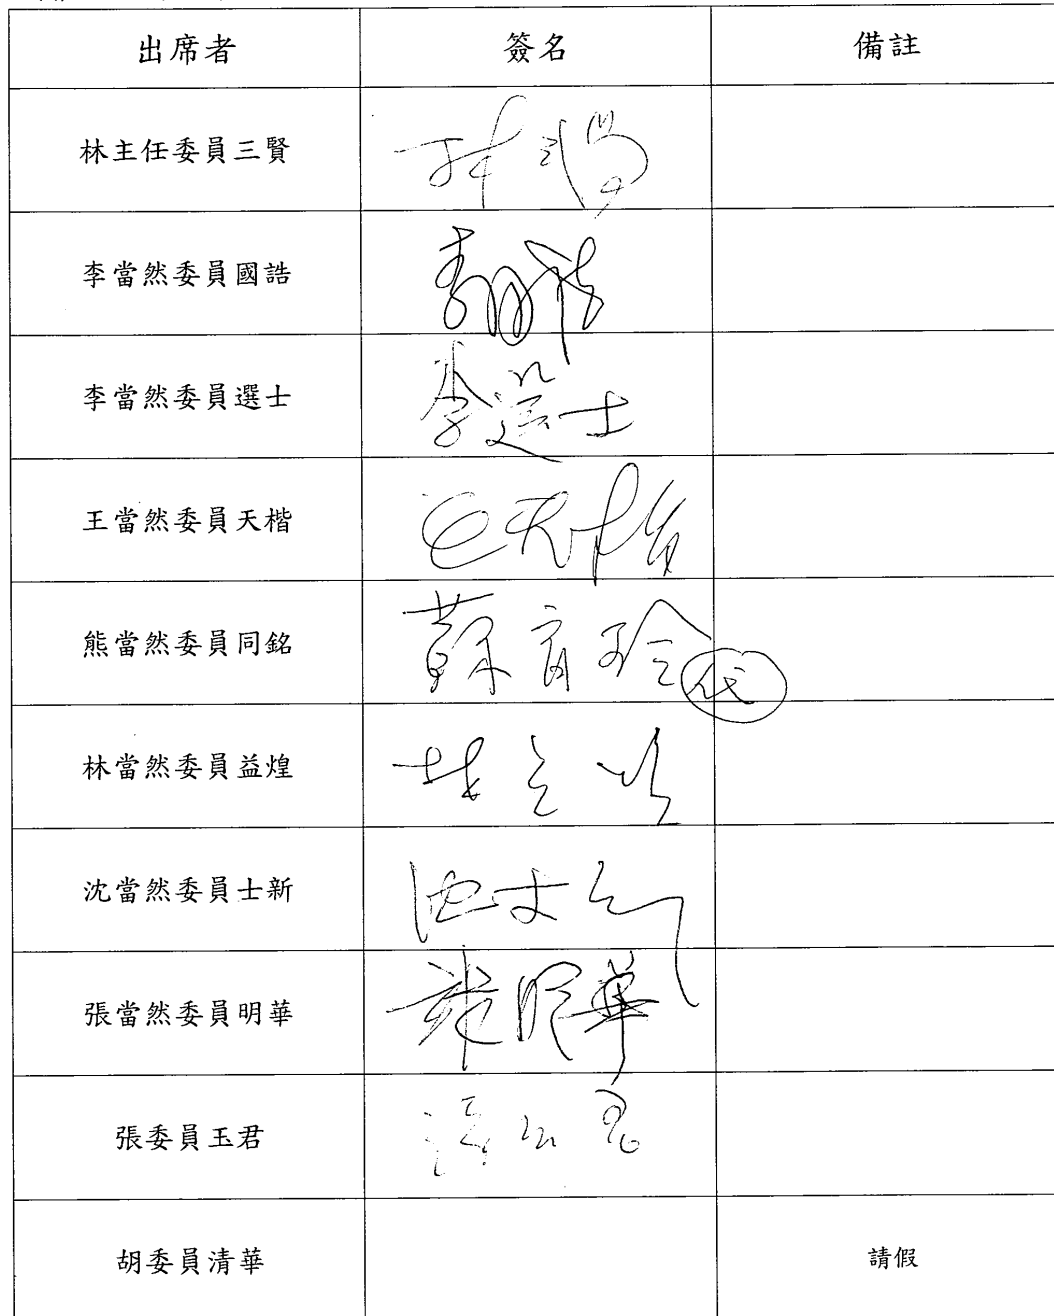 出席者 簽名 備註
林主任委員三賢
李當然委員國誥
李當然委員選士 李選士
王當然委員天楷 王天楷
熊當然委員同銘 蘇育玲 代
林當然委員益煌
沈當然委員士新
張當然委員明華 張明華
張委員玉君
胡委員清華 請假